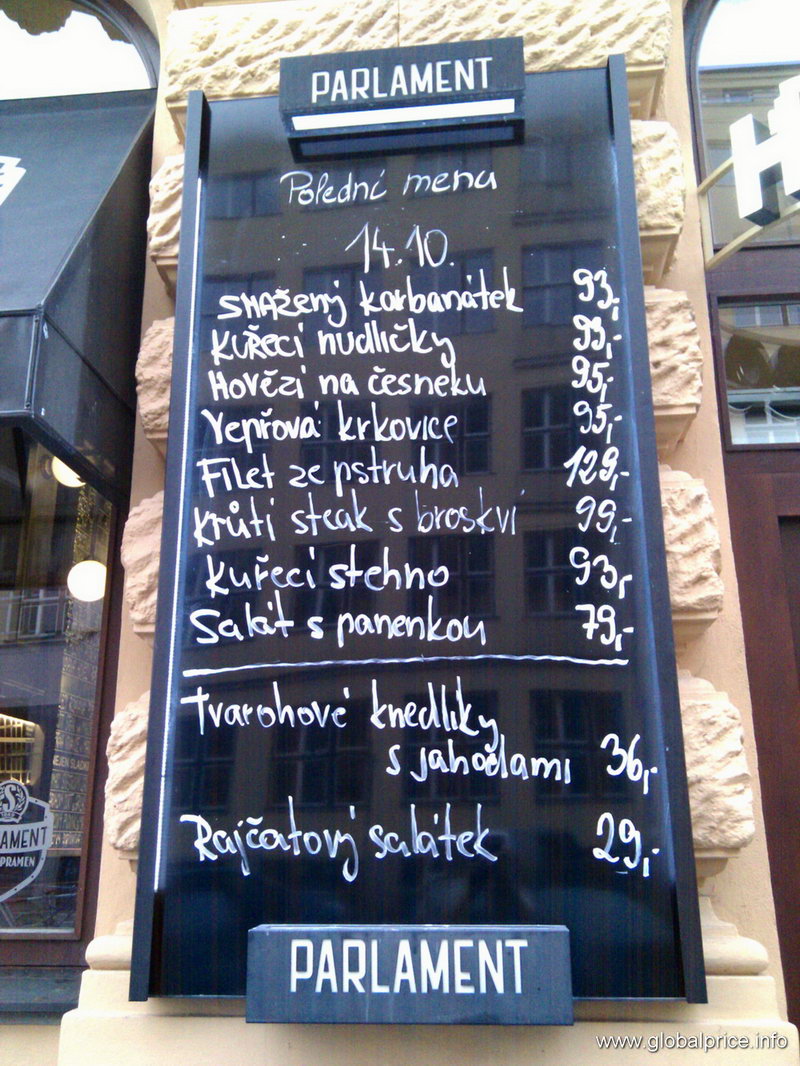 PARLAMENT
Polední menu
14.10.
SMAžený karbanátek 93,-
Kuřecí nudličky 93,-
Hovězí na česneku 95,-
Vepřová krkovice 95,-
Filet ze pstruha 129,-
Krůtí steak s broskví 99,-
Kuřecí stehno 93,-
Salát s panenkou 79,-
Tvarohové knedlíky
s jahodami 36,-
Rajčatový salátek 29,-
PARLAMENT
NEJEN SLADKO
AMENT
PRAMEN
H
www.globalprice.info